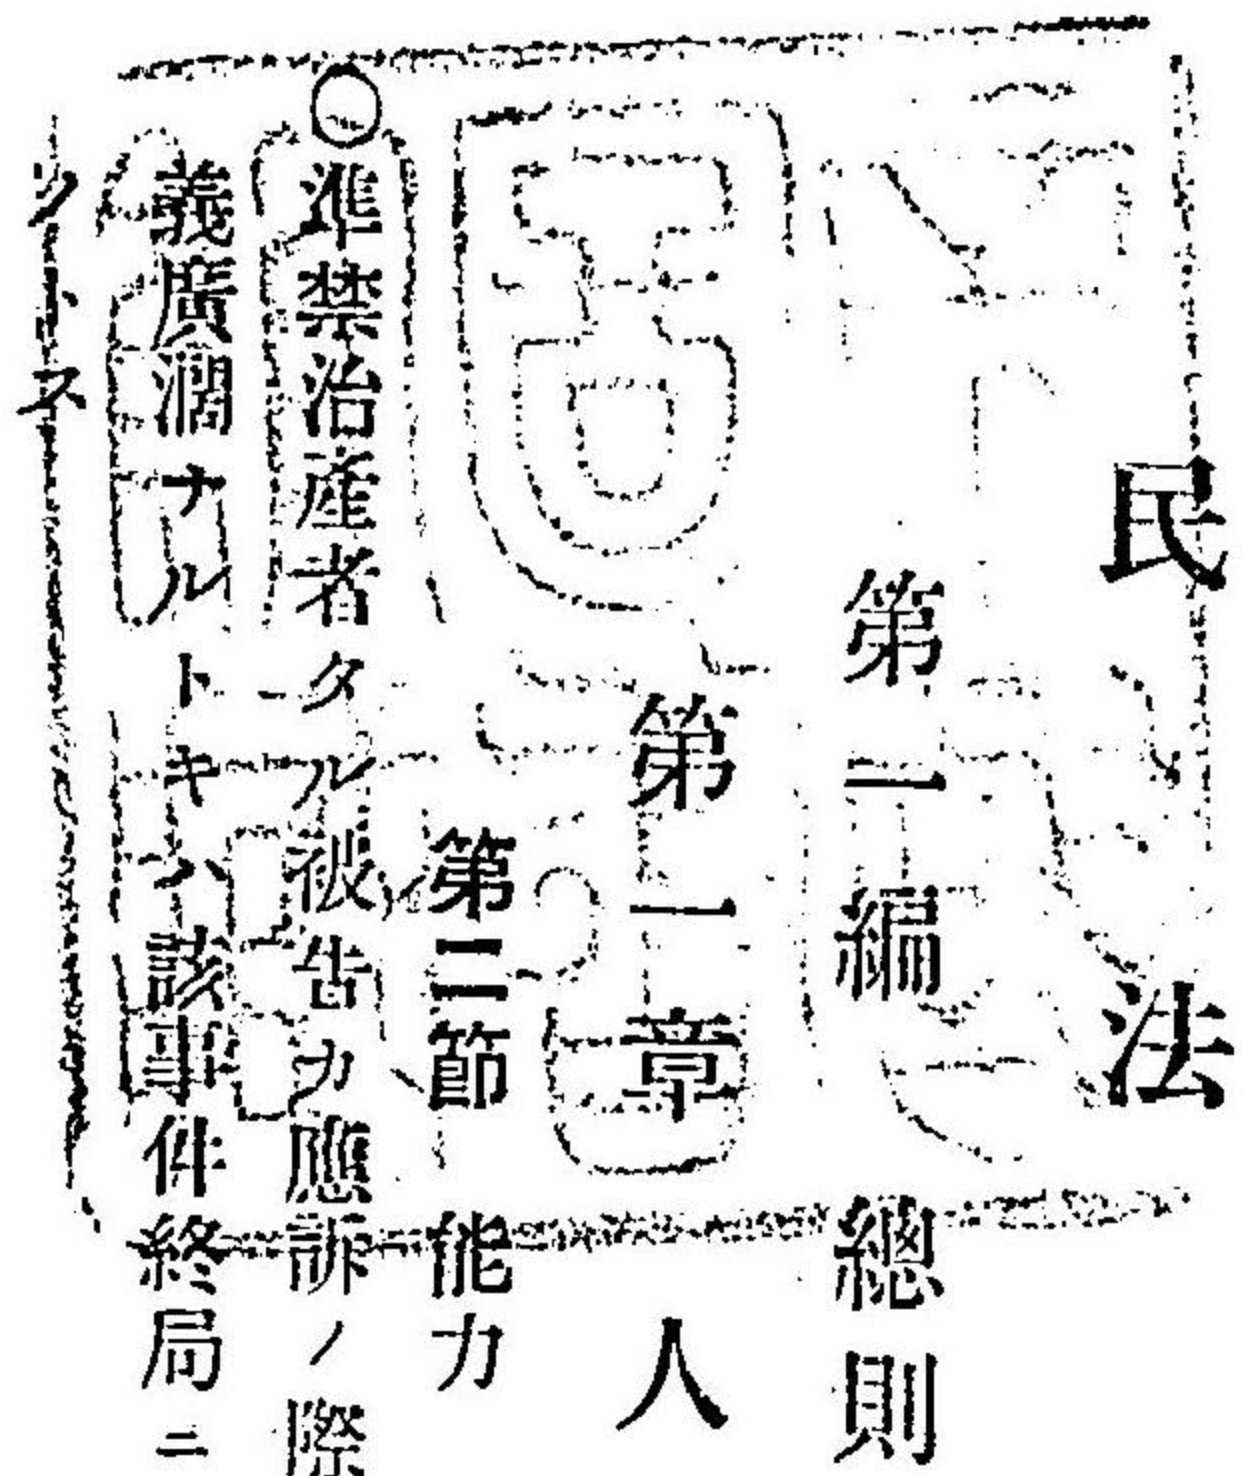 民法
第一編 總則
第一章 人
第二節 能力
○準禁治產者タル被告カ應訴ノ際
義廣濶ナルトキハ該事件終局ニ
トス